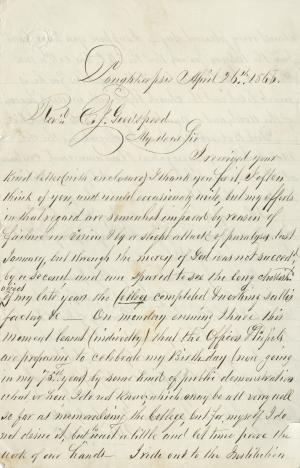 Poughkeepsie April 26th 1866.
Rev'd E. J. Goodspeed
My dear Sir
I received your
kind letter (with enclosure) I thank you for it, I often
think of you, and would occasionly write, but my efforts
in that regard are somewhat impared by reason of
failure in vision & by a slight attack of paralysis last
January, but through the mercy of God was not succeed'd
by a second and am spared to see the long cherished
object
of my late years the College completed & working satis
factory &c — On monday evening I have this
moment learnt (indirectly) that the Officers & Pupils
are preparing to celebrate my Birthday (now going
in my 75th year) by some kind of public demonstration
what or how, I do not know, which may be all very well
so far as memorialising the College but for myself I do
not desire it, but wait a little and let time prove the
work of our hands. I rode out to the Institution